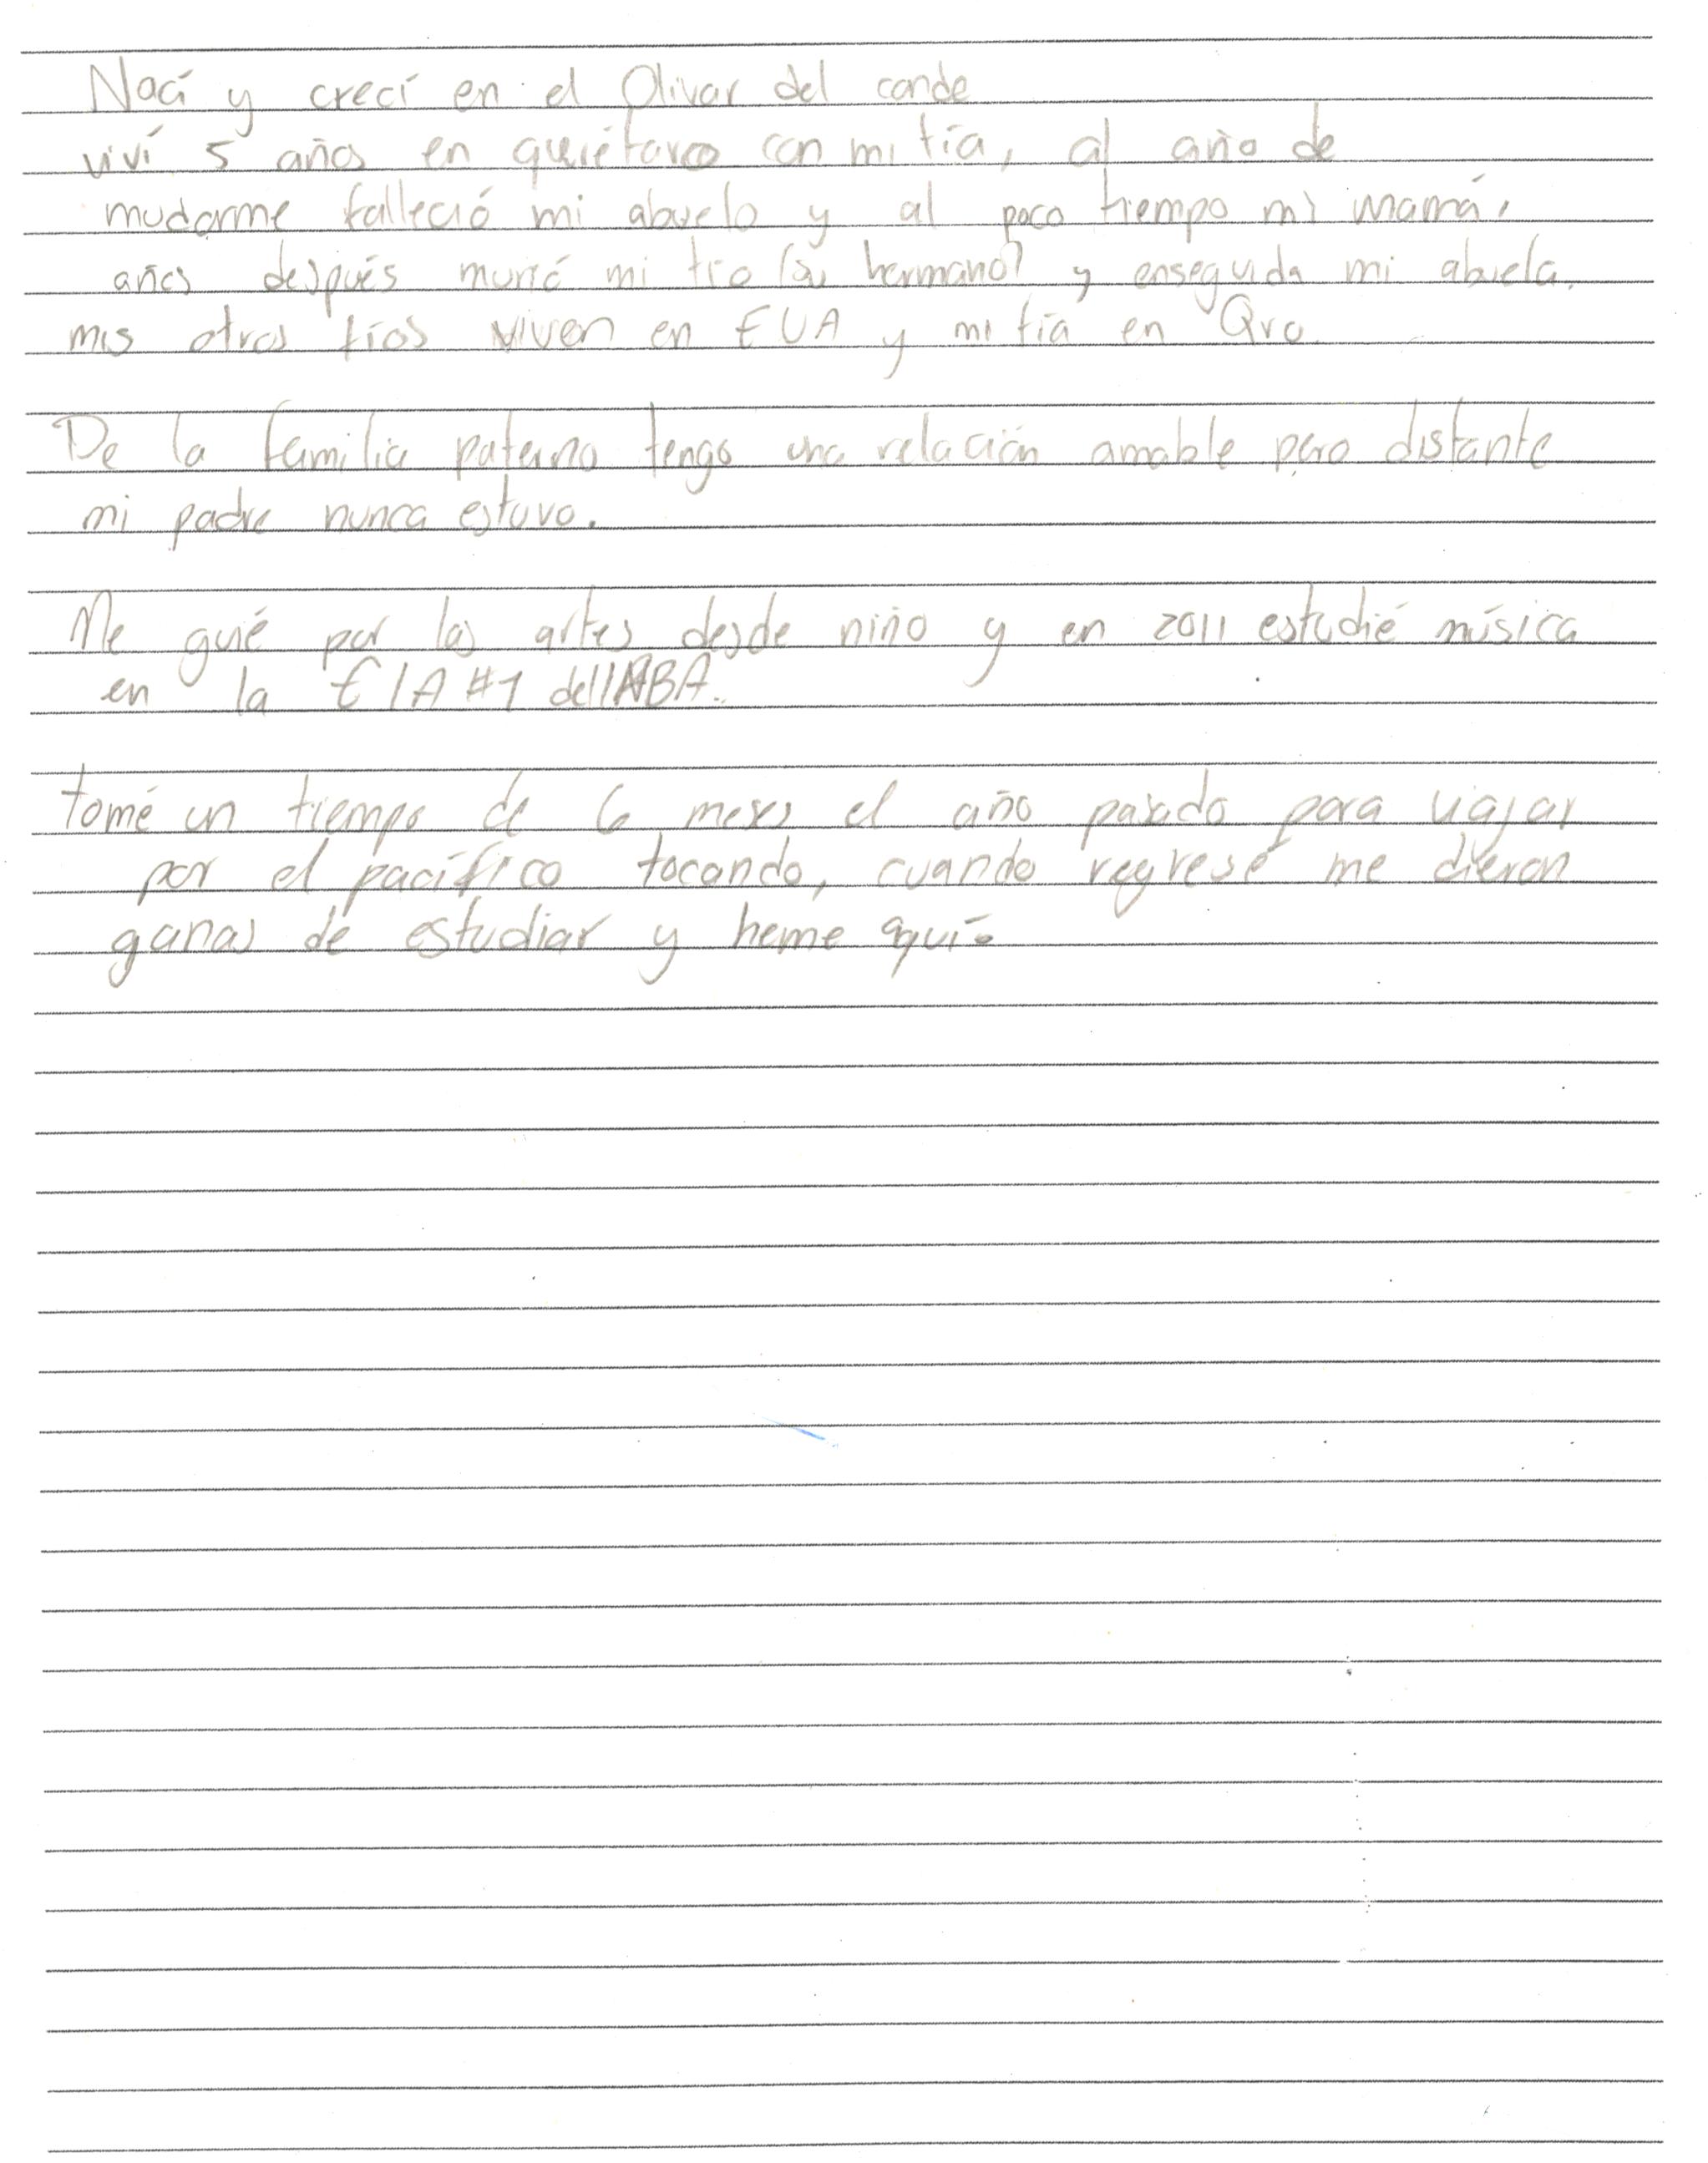 Nací y crecí en el Olivar del conde
viví 5 años en querétaro con mi tía, al año de
mudarme falleció mi abuelo y al poco tiempo mi mamá,
años después murió mi tío (su hermano) y enseguida mi abuela.
mis otros tíos viven en EUA y mi tía en Qro.
De la familia paterna tengo una relación amable pero distante
mi padre nunca estuvo.
Me guié por las artes desde niño y en 2011 estudié música
en la EIA #1 del INBA.
tomé un tiempo de 6 meses el año pasado para viajar
por el pacífico tocando, cuando regresé me dieron
ganas de estudiar y heme aquí.